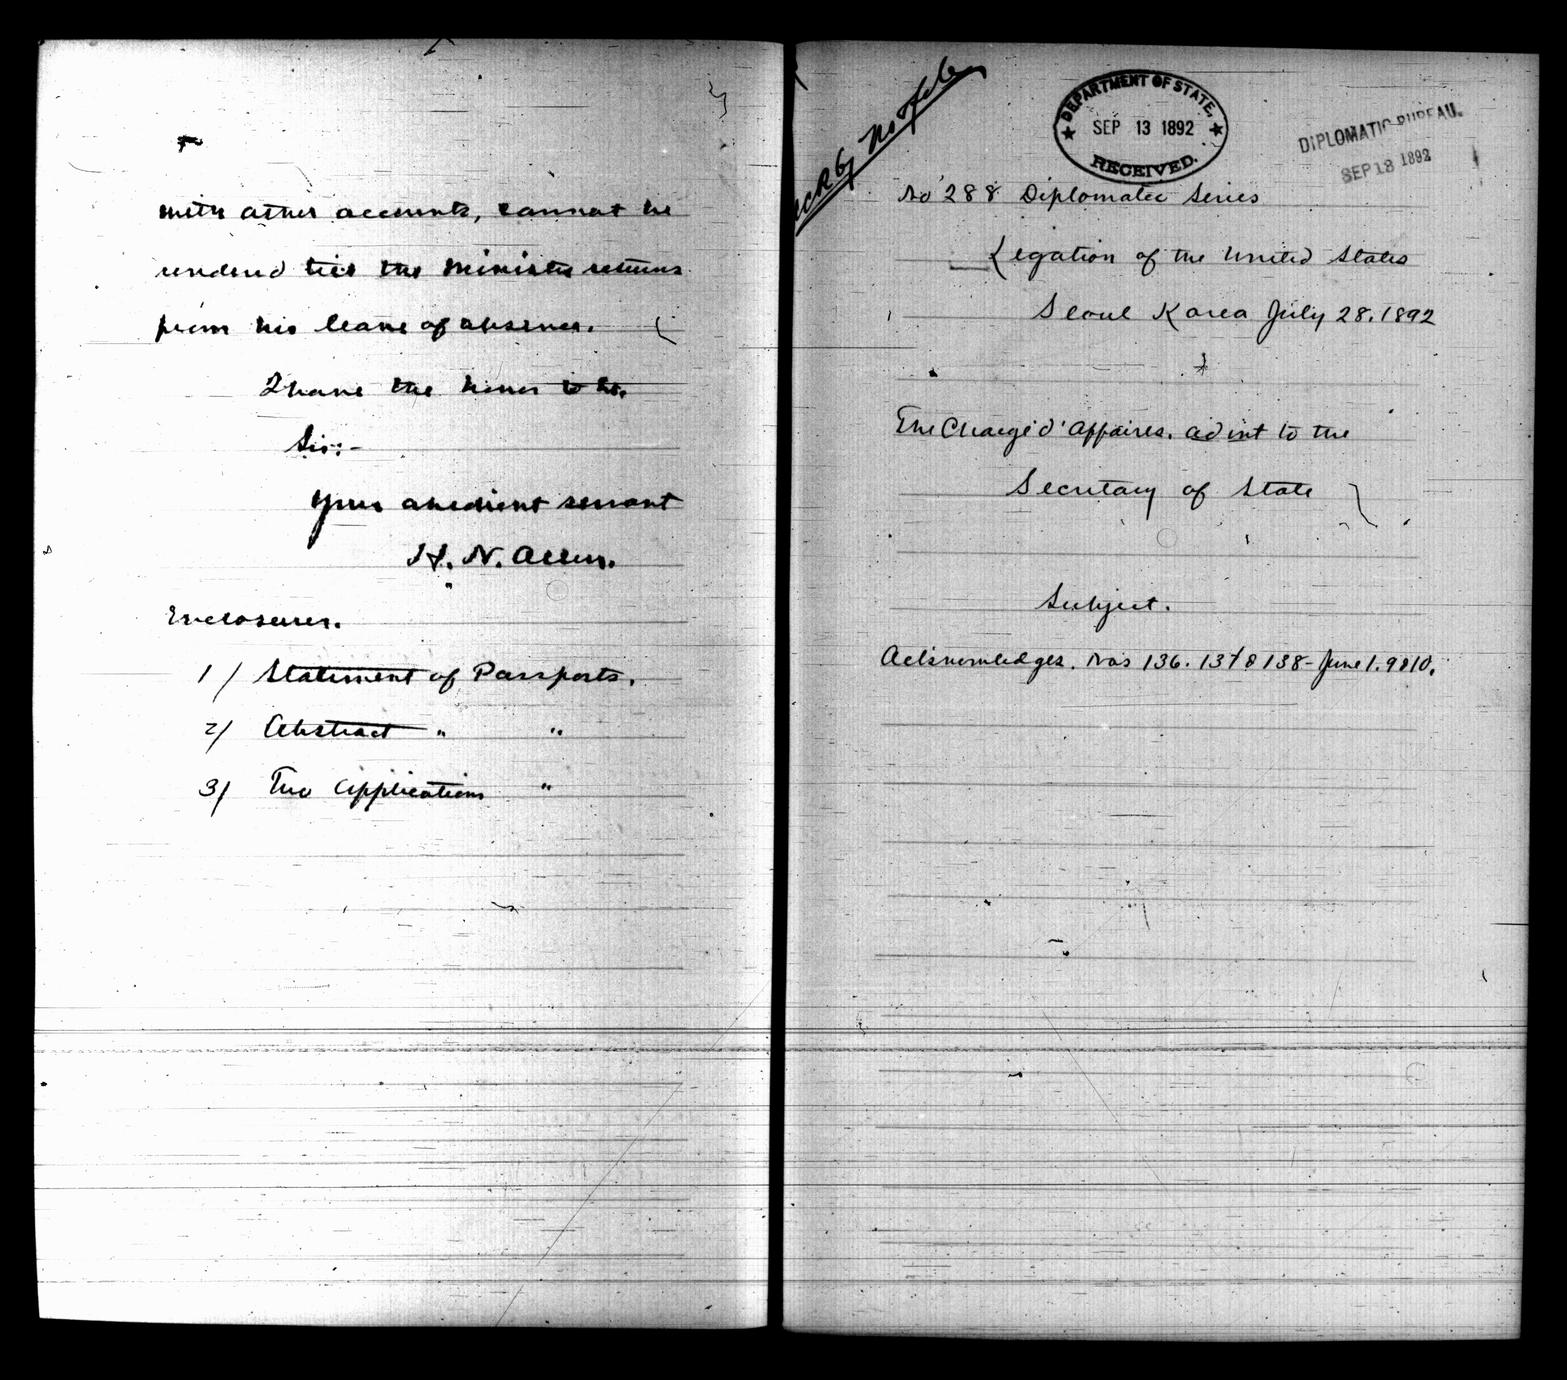 with other accounts, cannot be
rendered till the Minister returns
from his leave of absence.
I have the honor to be.
Sir:-
Your obedient servant
H. N. Allen.
Enclosures.
1/ Statement of Passports.
2/ Abstract " "
3/ Two Applications "
DEPARTMENT OF STATE,
SEP 13 1892
RECEIVED.
DIPLOMATIC BUREAU.
SEP 13 1892
No 288 Diplomatic Series
Legation of the United States
Seoul Korea July 28. 1892
The Chargé d'Affaires. ad int to the
Secretary of State
Subject.
Acknowledges. Nos 136. 137 & 138 - June 1. 9 & 10.